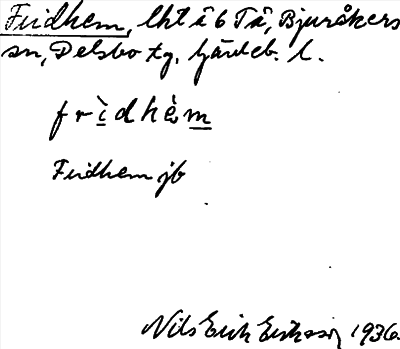 Fridhem, lht å 6 Tå, Bjuråkers
sn, Delsbo tg, Gävleb. l.
fri̱dhèm̱
Fridhem jb
Nils Erik Eriksson 1936.